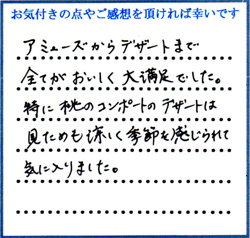 お気付きの点やご感想を頂ければ幸いです
アミューズからデザートまで
全てがおいしく大満足でした。
特に桃のコンポートのデザートは
見ためも涼しく季節を感じられて
気に入りました。